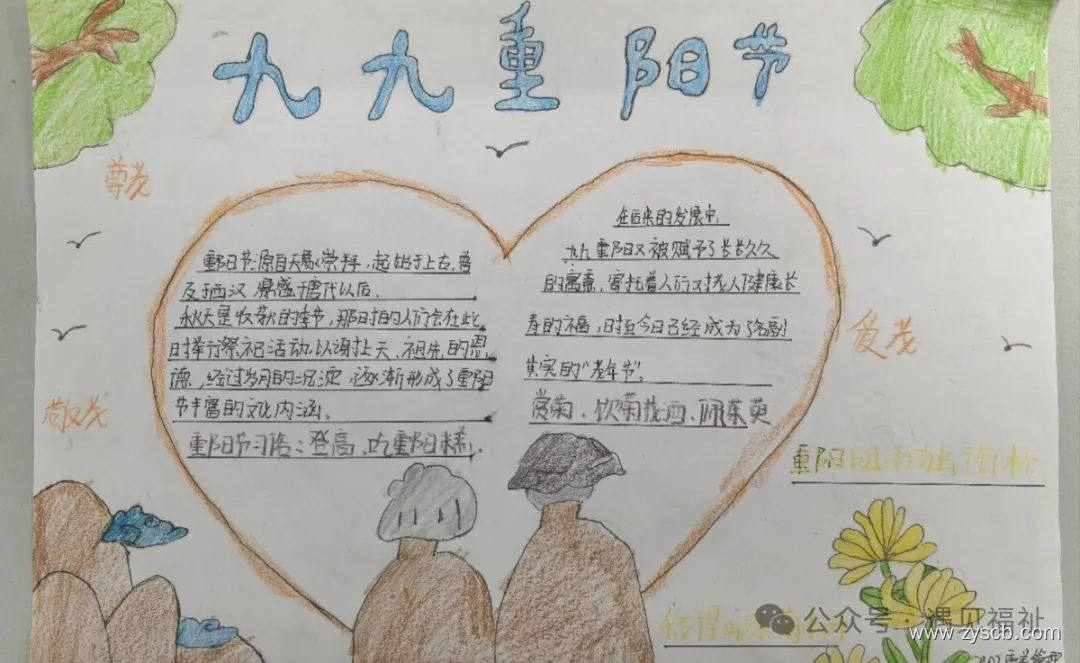 九九重阳节
尊老
重阳节:源自天象崇拜,起始于上古,普
及于西汉,鼎盛于唐代以后。
秋天是收获的季节,那时的人们会在此
时举行祭祀活动.以谢上天、祖先的恩
德,经过岁月的沉淀,逐渐形成了重阳
节丰富的文化内涵。
重阳节习俗:登高、吃重阳糕,
在后来的发展中,
九九重阳又被赋予了长长久久
的寓意,寄托着人们对老人健康长
寿的祝福,时至今日已经成为了名副
其实的“老年节”。
赏菊、饮菊花酒、佩茱萸
爱老
敬老
重阳
公众号 · 遇见福祉
www.zyscb.com